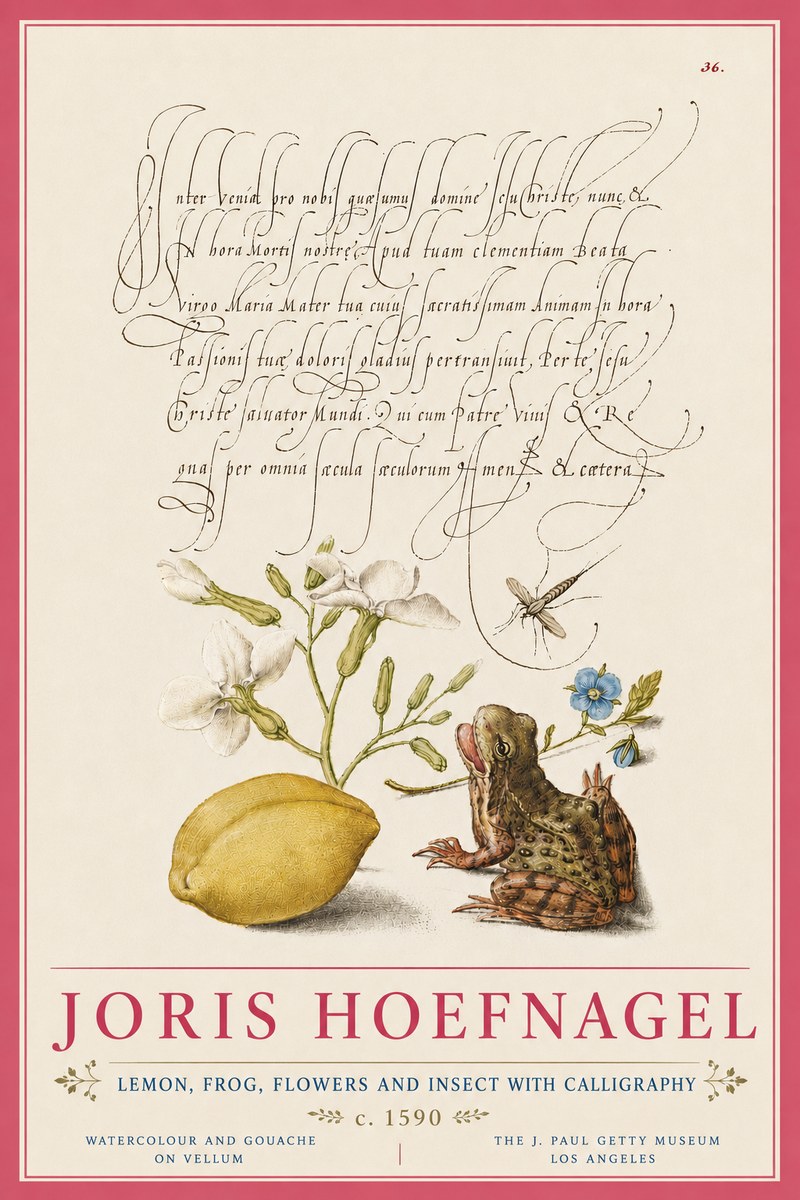 36.
Inter Veniat pro nobis quæsumus domine Iesu Christe, nunc, &
IN hora Mortis nostrę Apud tuam clementiam Beata
Virgo Maria Mater tua cuius sacratissimam Animam In hora
Passionis tuæ doloris gladius pertransiuit, Per te, Iesu
Christe saluator Mundi. Qui cum Patre Viuis & Re
gnas per omnia sæcula sæculorum Amen & cætera
JORIS HOEFNAGEL
LEMON, FROG, FLOWERS AND INSECT WITH CALLIGRAPHY
c. 1590
WATERCOLOUR AND GOUACHE
ON VELLUM
THE J. PAUL GETTY MUSEUM
LOS ANGELES